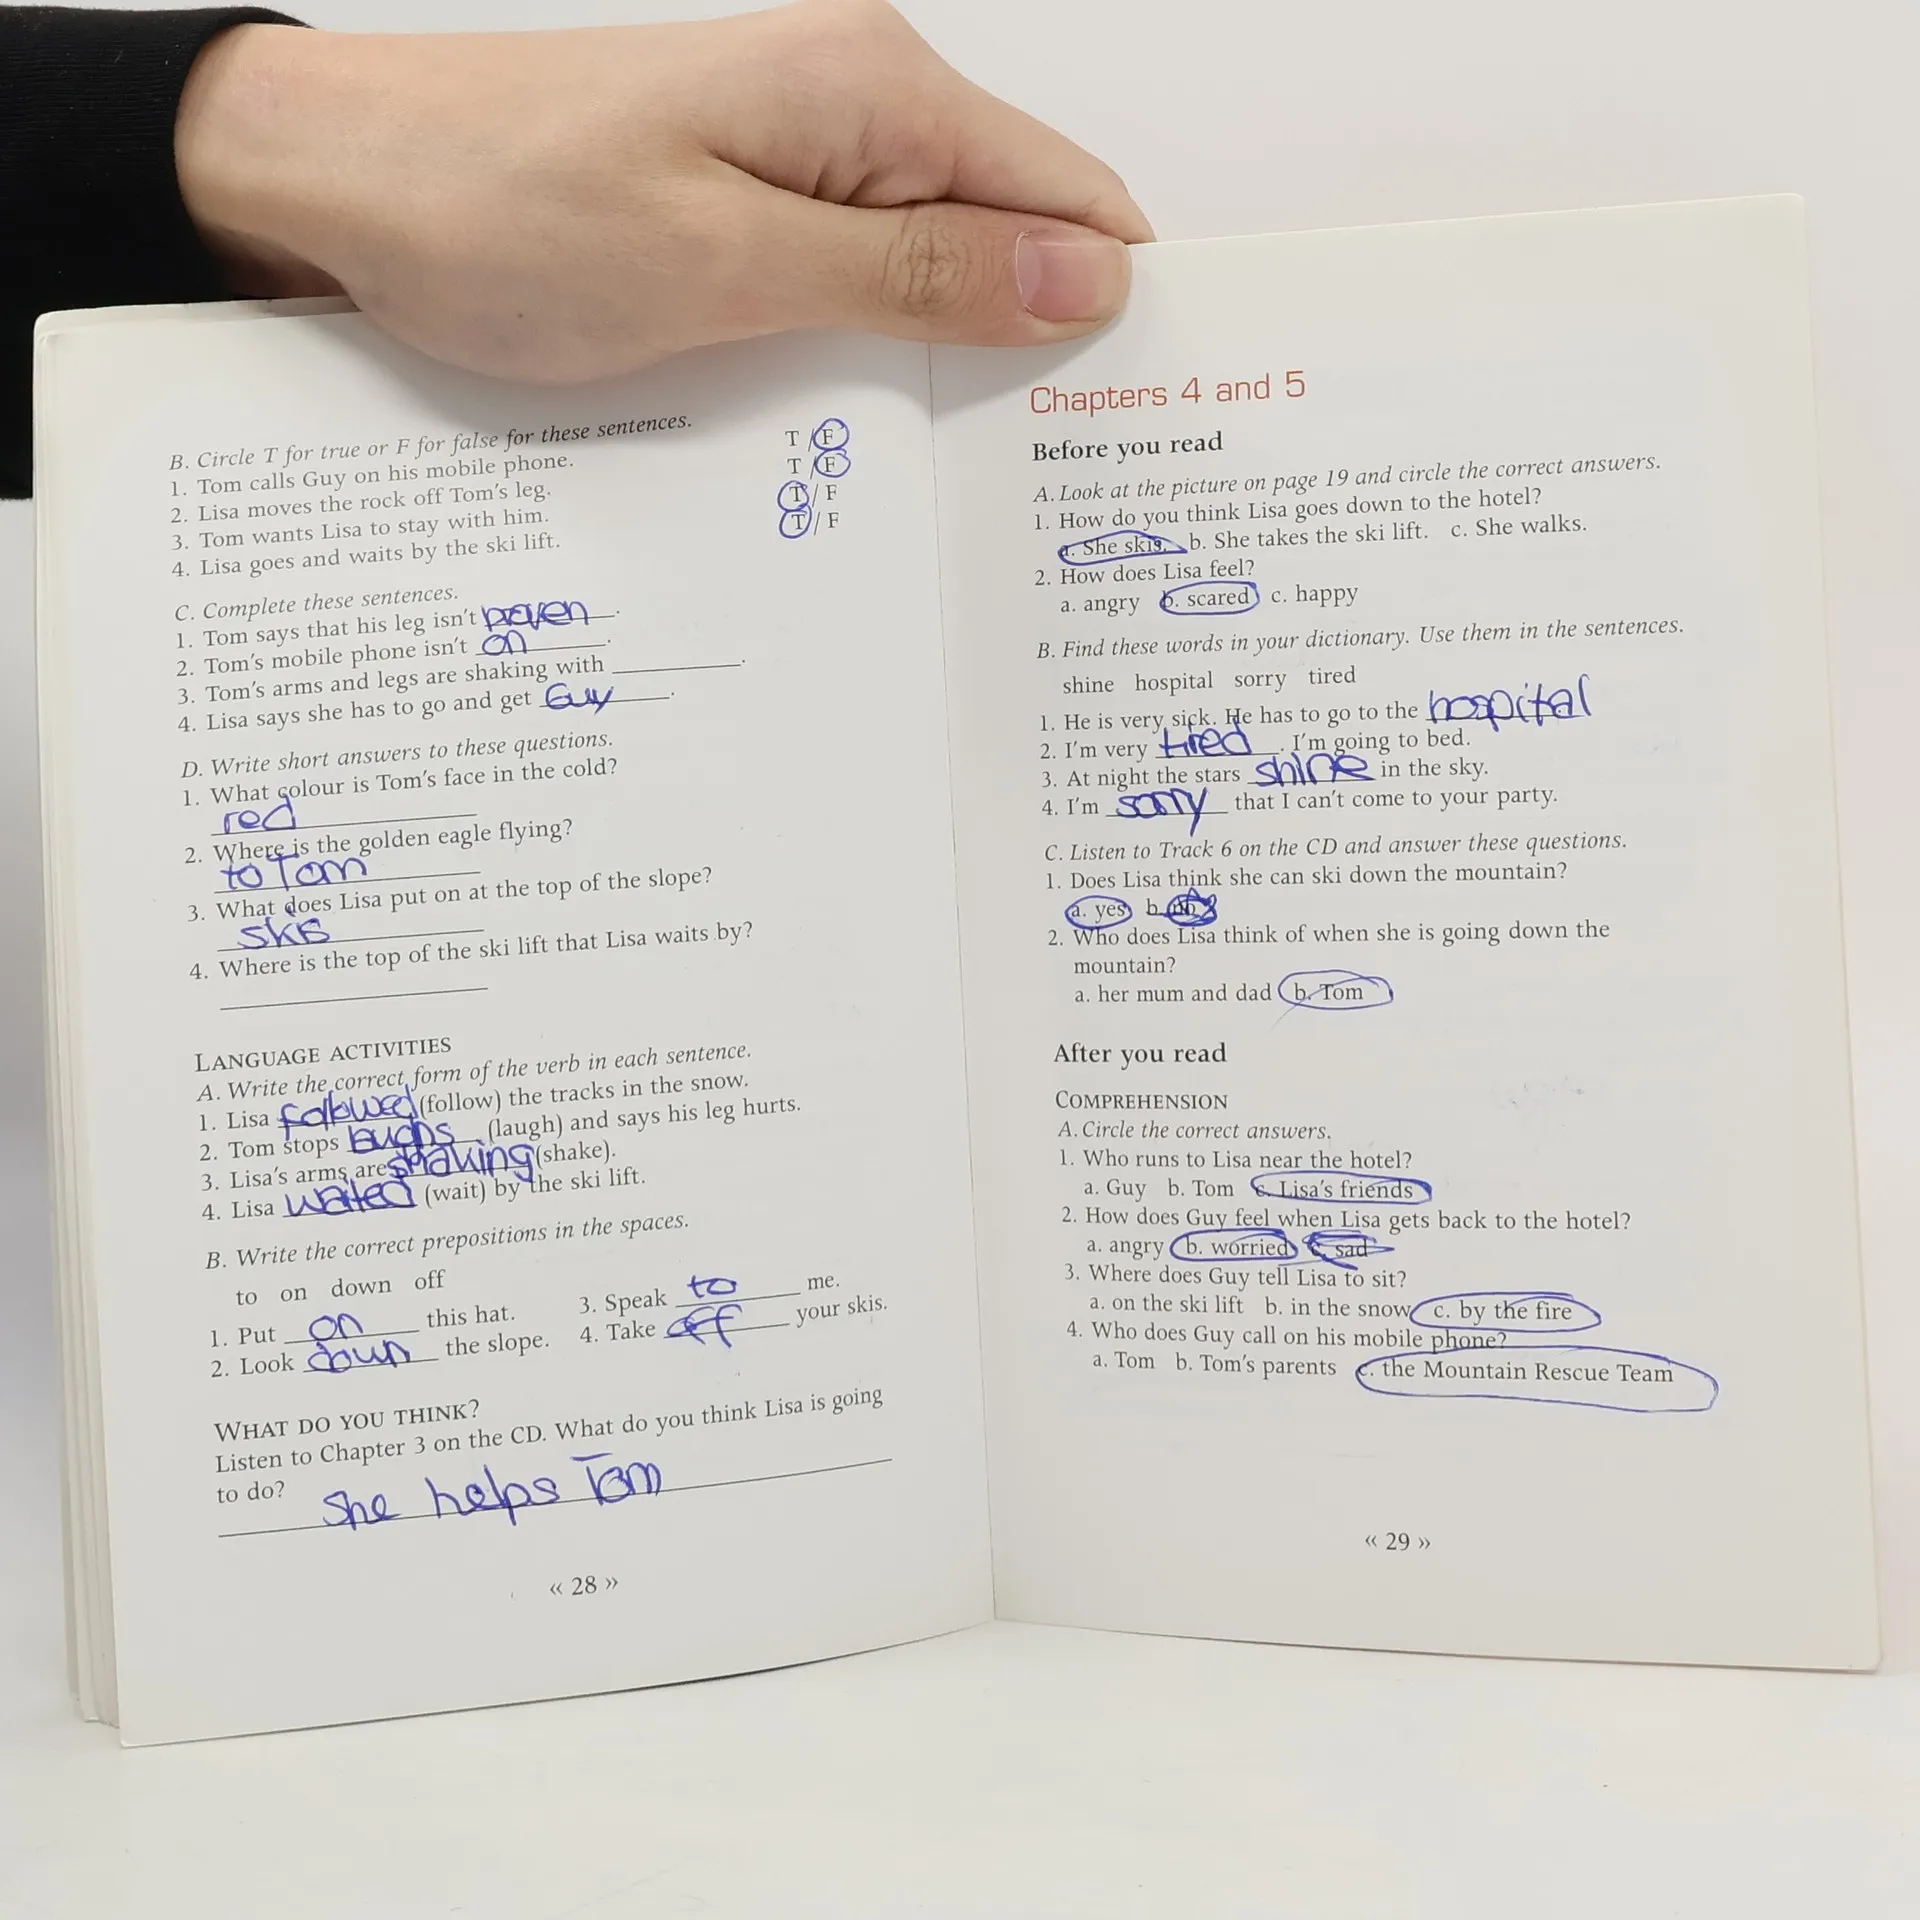 B. Circle T for true or F for false for these sentences.
1. Tom calls Guy on his mobile phone. T / F
2. Lisa moves the rock off Tom's leg. T / F
3. Tom wants Lisa to stay with him. T / F
4. Lisa goes and waits by the ski lift. T / F
C. Complete these sentences.
1. Tom says that his leg isn't .
2. Tom's mobile phone isn't on .
3. Tom's arms and legs are shaking with .
4. Lisa says she has to go and get Guy .
D. Write short answers to these questions.
1. What colour is Tom's face in the cold?
red
2. Where is the golden eagle flying?
to Tom
3. What does Lisa put on at the top of the slope?
skis
4. Where is the top of the ski lift that Lisa waits by?
LANGUAGE ACTIVITIES
A. Write the correct form of the verb in each sentence.
1. Lisa followed (follow) the tracks in the snow.
2. Tom stops laughs (laugh) and says his leg hurts.
3. Lisa's arms are shaking (shake).
4. Lisa waited (wait) by the ski lift.
B. Write the correct prepositions in the spaces.
to on down off
1. Put on this hat.
2. Look down the slope.
3. Speak to me.
4. Take off your skis.
WHAT DO YOU THINK?
Listen to Chapter 3 on the CD. What do you think Lisa is going
to do? She helps Tom
« 28 »
Chapters 4 and 5
Before you read
A. Look at the picture on page 19 and circle the correct answers.
1. How do you think Lisa goes down to the hotel?
a. She skis. b. She takes the ski lift. c. She walks.
2. How does Lisa feel?
a. angry b. scared c. happy
B. Find these words in your dictionary. Use them in the sentences.
shine hospital sorry tired
1. He is very sick. He has to go to the hospital
2. I'm very tired . I'm going to bed.
3. At night the stars shine in the sky.
4. I'm sorry that I can't come to your party.
C. Listen to Track 6 on the CD and answer these questions.
1. Does Lisa think she can ski down the mountain?
a. yes b. no
2. Who does Lisa think of when she is going down the
mountain?
a. her mum and dad b. Tom
After you read
COMPREHENSION
A. Circle the correct answers.
1. Who runs to Lisa near the hotel?
a. Guy b. Tom c. Lisa's friends
2. How does Guy feel when Lisa gets back to the hotel?
a. angry b. worried c. sad
3. Where does Guy tell Lisa to sit?
a. on the ski lift b. in the snow c. by the fire
4. Who does Guy call on his mobile phone?
a. Tom b. Tom's parents c. the Mountain Rescue Team
« 29 »